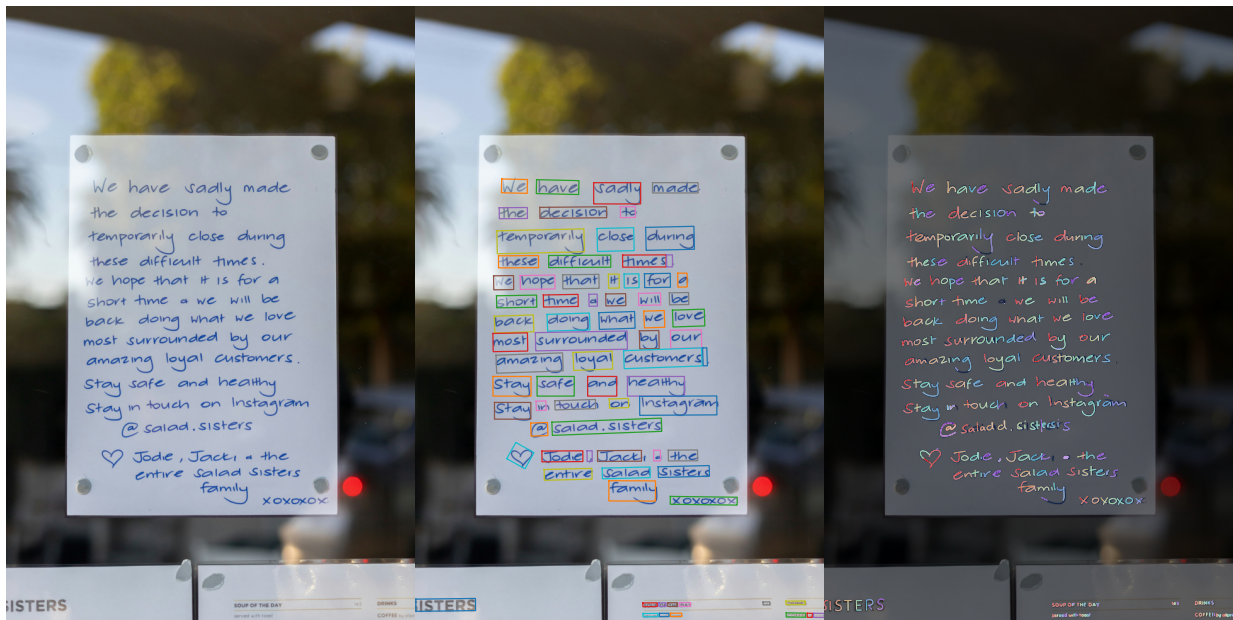 We have sadly made
the decision to
temporarily close during
these difficult times.
We hope that it is for a
short time & we will be
back doing what we love
most surrounded by our
amazing loyal customers.
Stay safe and healthy
Stay in touch on Instagram
@salad.sisters
♡ Jodie, Jack, & the
entire Salad Sisters
family
xoxoxox
SISTERS
SOUP OF THE DAY
served with toast
DRINKS
COFFEE
We have sadly made
the decision to
temporarily close during
these difficult times.
We hope that it is for a
short time & we will be
back doing what we love
most surrounded by our
amazing loyal customers.
Stay safe and healthy
Stay in touch on Instagram
@salad.sisters
♡ Jodie, Jack, & the
entire Salad Sisters
family
xoxoxox
SISTERS
We have sadly made
the decision to
temporarily close during
these difficult times.
We hope that it is for a
short time & we will be
back doing what we love
most surrounded by our
amazing loyal customers.
Stay safe and healthy
Stay in touch on Instagram
@salad.sisters
♡ Jodie, Jack, & the
entire Salad Sisters
family
xoxoxox
SISTERS
SOUP OF THE DAY
served with toast
DRINKS
COFFEE